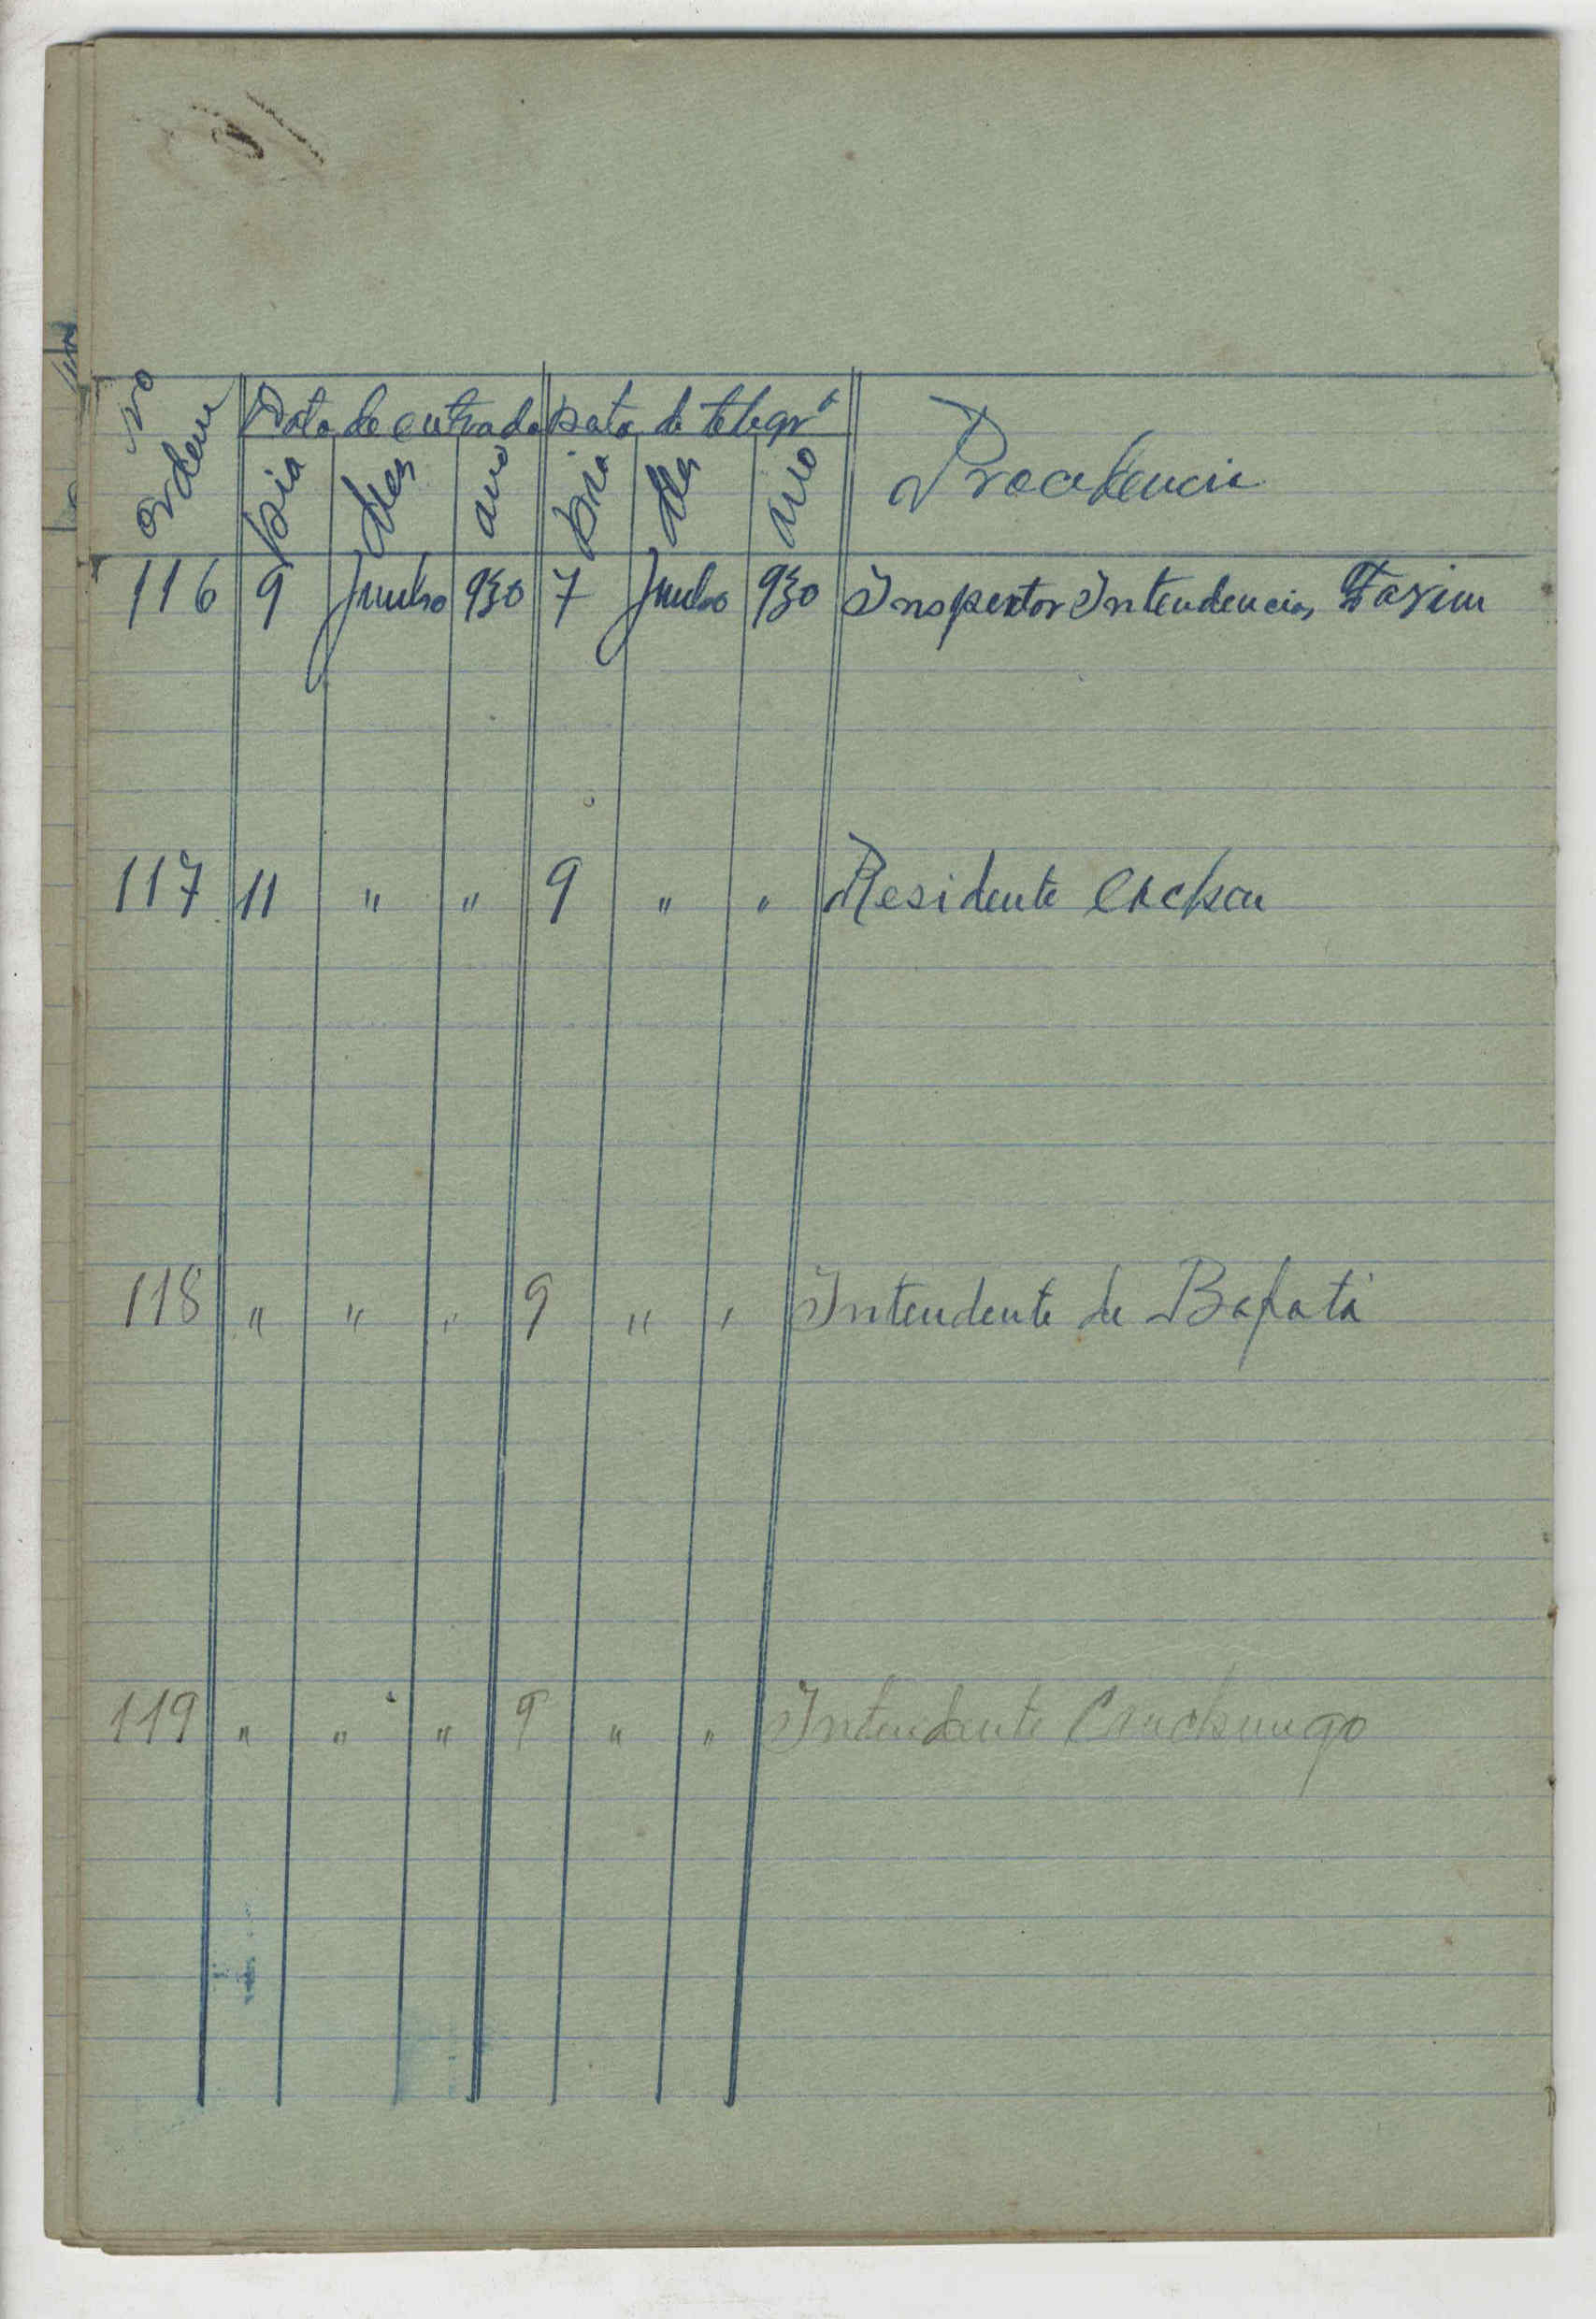 No ordem Data de entrada Data do telegr^a Procedencia
Dia Mez ano Dia Mez ano
116 9 Junho 930 7 Junho 930 Inspector Intendencias Farim
117 11 " " 9 " " Residente Cacheu
118 " " " 9 " " Intendente de Bafatá
119 " " " 9 " " Intendente Canchungo